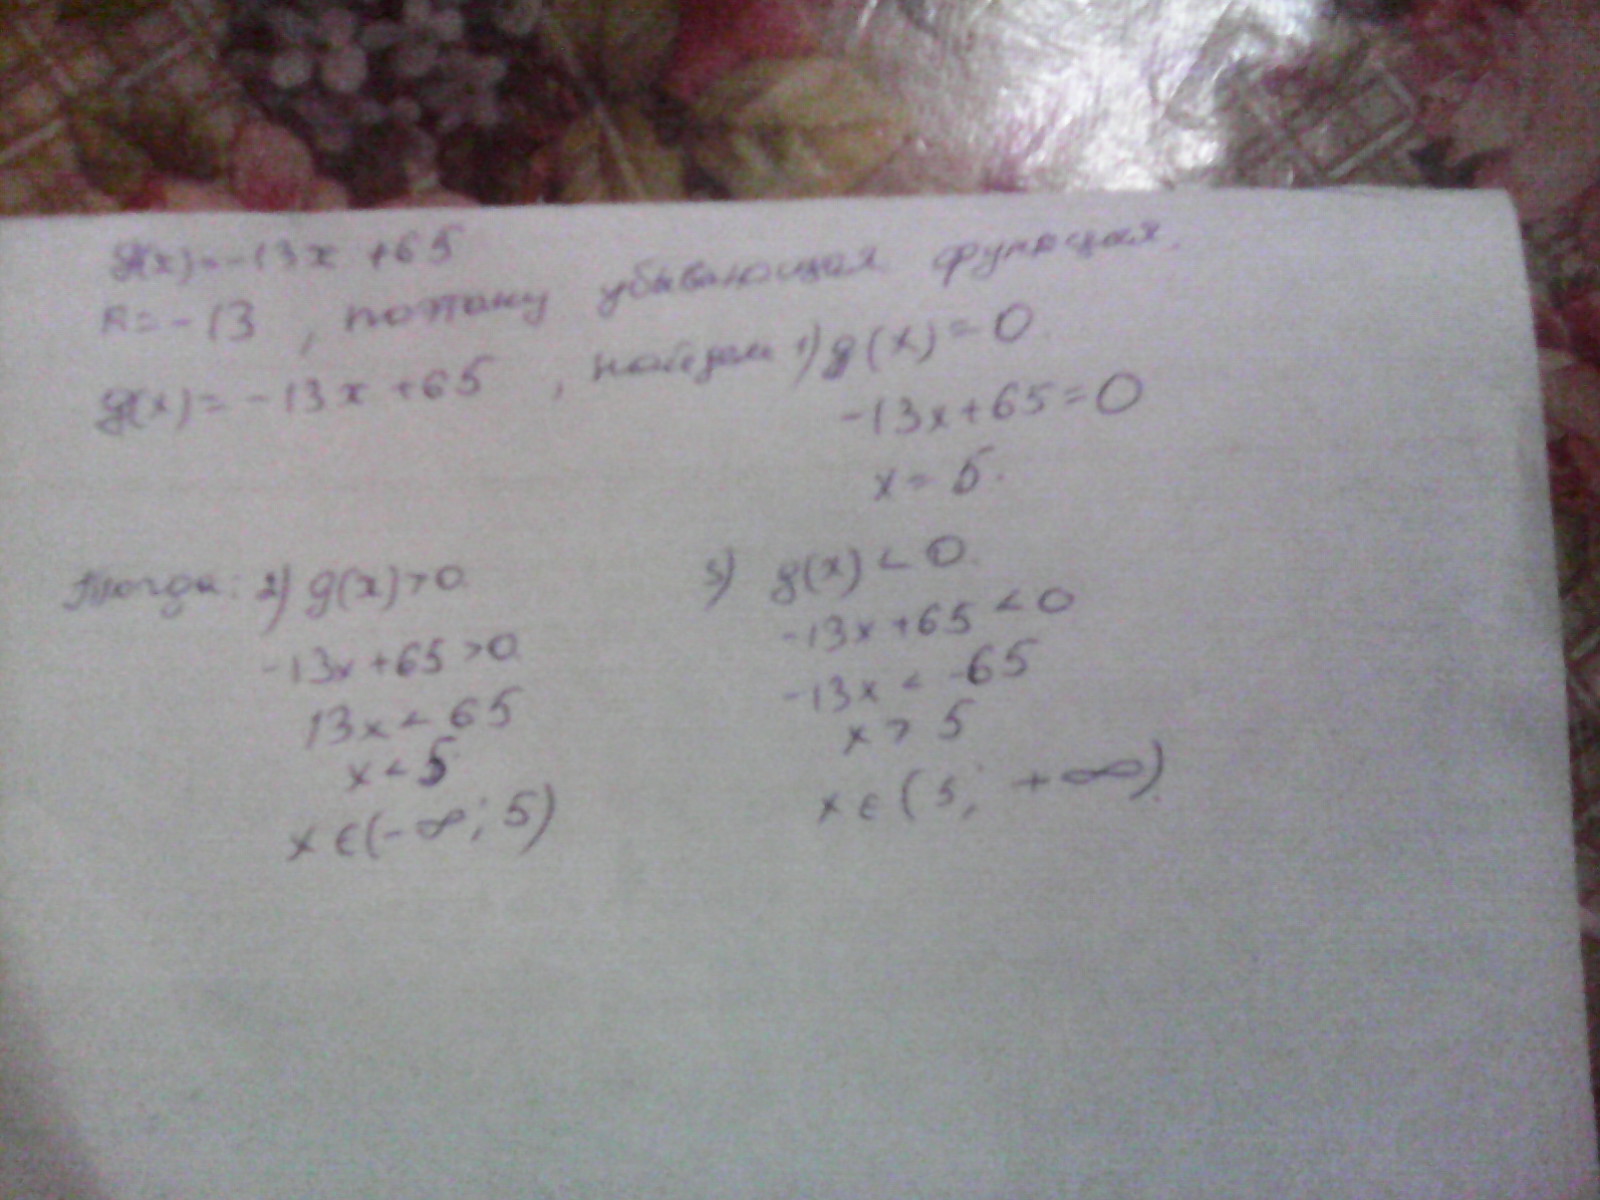 g(x)=-13x+65
k=-13, поэтому убывающая функция.
g(x)=-13x+65, найдем 1) g(x)=0.
-13x+65=0
x=5.
Тогда: 2) g(x)>0
-13x+65>0
13x<65
x<5
x∈(-∞;5)
3) g(x)<0.
-13x+65<0
-13x<-65
x>5
x∈(5;+∞).